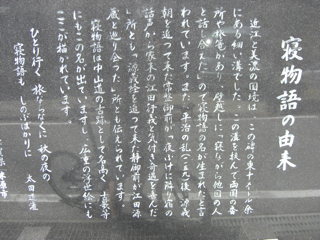 寝物語の由来
近江と美濃の国境は、この碑の東十メートル余
にある細い溝でした。この溝を挟んで両国の番
所や旅篭があり、壁越しに「寝ながら他国の人
と話し合えた」ので寝物語の名が生まれたと言
われています。また、平治の乱(
)後、源義
朝を追って来た常盤御前が「夜ふけに隣り宿の
話声から家来の江田行義と気付き奇遇を喜んだ」
所とも「源義経を追って来た静御前が江田源
蔵と巡り会った」所とも伝えられています。
寝物語は中山道の古跡として名高く、
書等
にもこの名が出ていますし、広重の浮世絵にも
ここが描かれています。
ひとり行く 旅ならなくに 秋の夜の
寝物語も しのぶばかりに
太田道灌